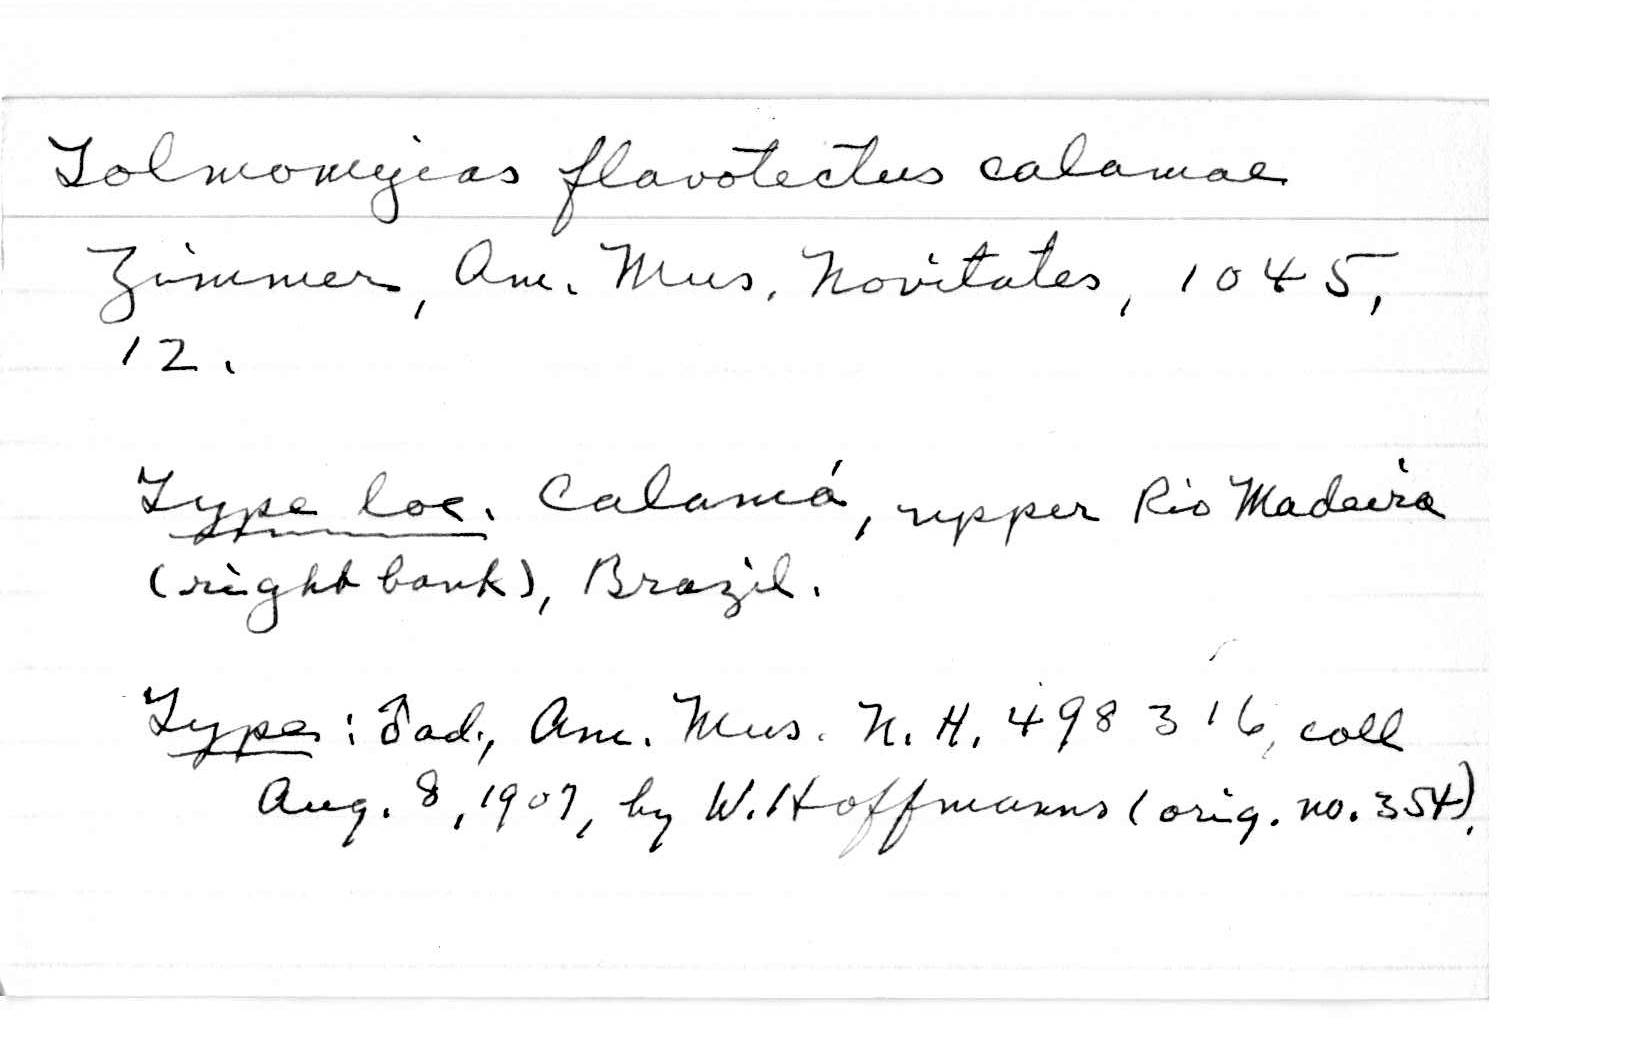 Tolmomyias flavotectus calamae
Zimmer, Am. Mus. Novitates, 1045,
12.
Type loc. Calamá, upper Rio Madeira
(right bank), Brazil.
Type: ♂ad., Am. Mus. N. H. 498316, coll
Aug. 8, 1907, by W. Hoffmanns (orig. no. 354).